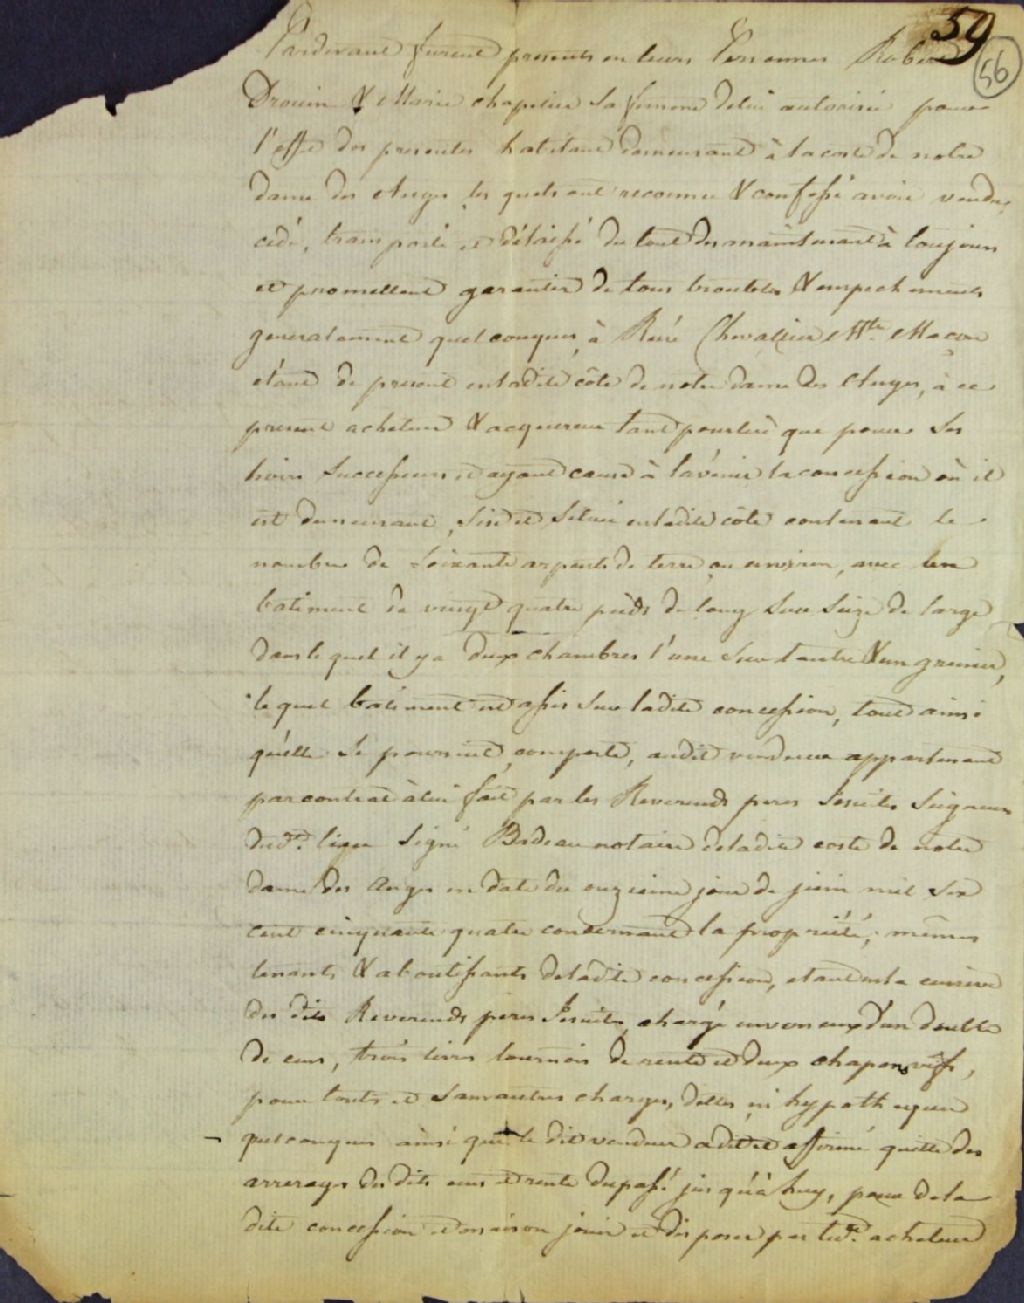 59
56
Pardevant furent presents en leurs Personnes Robert
Drouin & Marie chapelier sa femme de lui autorisée pour
l'effet des presentes habitant demeurant à la coste de notre
dame des Anges, les quels ont reconnu & confessé avoir vendu,
cédé, transporté et délaissé du tout dès maintenant à toujours
et promettent garantir de tous troubles & empechements
generalement quelconques, à Réné Chevallier Mtre Macon
etant de present en ladite côte de notre dame des Anges, à ce
present acheteur & acquereur tant pour lui que pour ses
hoirs successeurs et ayant cause à l'avenir la concession où il
est demeurant, sise et située en ladite côte contenant le
nombre de soixante arpents de terre ou environ, avec un
batiment de vingt quatre pieds de long sur seize de large
dans le quel il y a deux chambres l'une sur l'autre & un grenier,
le quel bâtiment est assis sur ladite concession, tout ainsi
qu'elle se poursuit, comporte, audit vendeur appartenant
par contrat à lui fait par les Reverends peres Jesuites Seigneurs
dud. lieu signé Badeau notaire de ladite coste de notre
dame des Anges en date du onzieme jour de juin mil six
cent cinquante quatre concernant la propriété, mêmes
tenants & aboutissants de ladite concession, etant en la censive
des dits Reverends peres Jesuites, chargé envers eux d'un double
de cens, trois livres tournois de rente et deux chapons vifs,
pour toutes et sans autres charges, dettes, ni hypotheques
quelconques ainsi que le dit vendeur a dit et affirmé quitte des
arrerages des dits cens et rente du passé jusqu'à huy, pour de la
dite concession et maison jouir et disposer par led. acheteur